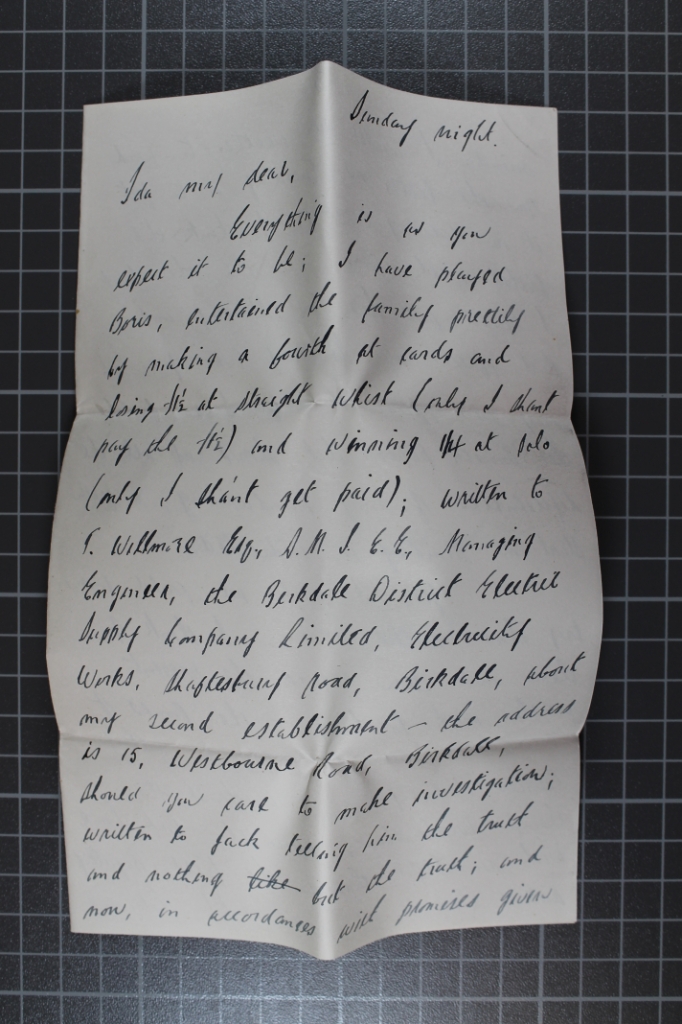 Sunday night.
Ida my dear,
Everything is as you
expect it to be; I have played
Boris, entertained the family prettily
by making a fourth at cards and
losing at straight whist (only I shant
pay the) and winning 1/4 at solo
(only I shan't get paid); written to
T. Willmore Esq, A.M.I.E.E., Managing
Engineer, the Birkdale District Electric
Supply Company Limited, Electricity
Works, Shaftesbury Road, Birkdale, about
my second establishment – the address
is 15, Westbourne Road, Birkdale,
should you care to make investigation;
written to Jack telling him the truth
and nothing like but the truth; and
now, in accordances with promises given